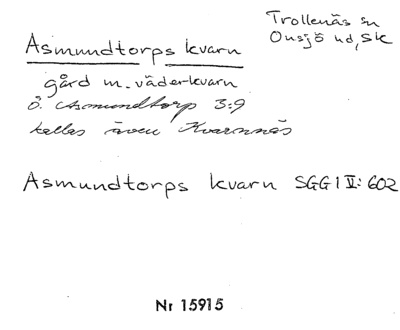 Trollenäs sn
Onsjö hd, Sk
Asmundtorps kvarn
gård m. väderkvarn
Ö. Asmundtorp 3:9
kallas även Kvarnnäs
Asmundtorps kvarn SGG I V: 602
Nr 15915